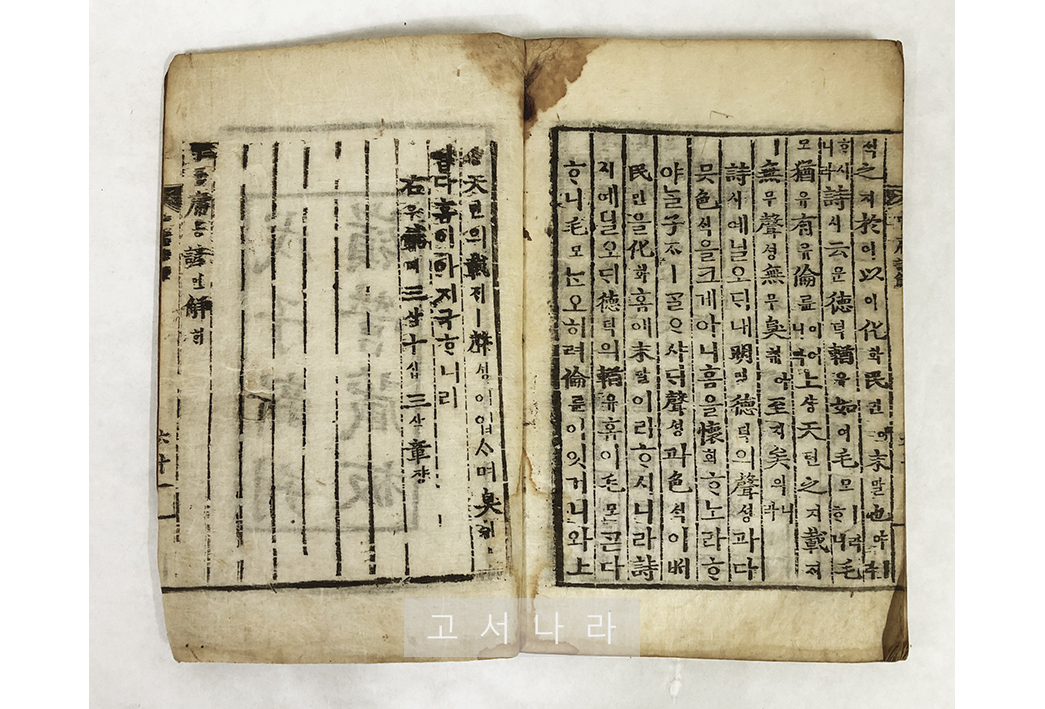 식之지於어以이化화民민애末말也야ㅣ라
ᄒᆞ시니라詩시云운德덕輶유如여毛모ㅣ라ᄒᆞ니毛
모猶유有유倫륜上샹天텬之지載ᄌᆡ
ㅣ無무聲셩無무臭취아至지矣의니라
詩시예닐오ᄃᆡ내明명德덕의聲셩과다
ᄆᆞᆺ色식을크게아니홈을懷회ᄒᆞ노라ᄒᆞ
야ᄂᆞᆯ子ᄌᆞㅣᄀᆞᆯᄋᆞ샤ᄃᆡ聲셩과色식이ᄡᅥ
民민을化화홈애末말이라ᄒᆞ시니라詩
시예닐오ᄃᆡ德덕의輶유홈이毛모ᄀᆞᆮ다
ᄒᆞ니毛모ᄂᆞᆫ오히려倫륜이잇거니와上
샹天텬의載ᄌᆡㅣ聲셩이업스며臭취ㅣ
업다홈이아지극ᄒᆞ니라
右우ᄂᆞᆫ第뎨三삼十십三삼章쟝
中듕庸용諺언解ᄒᆡ
六十一
고서나라